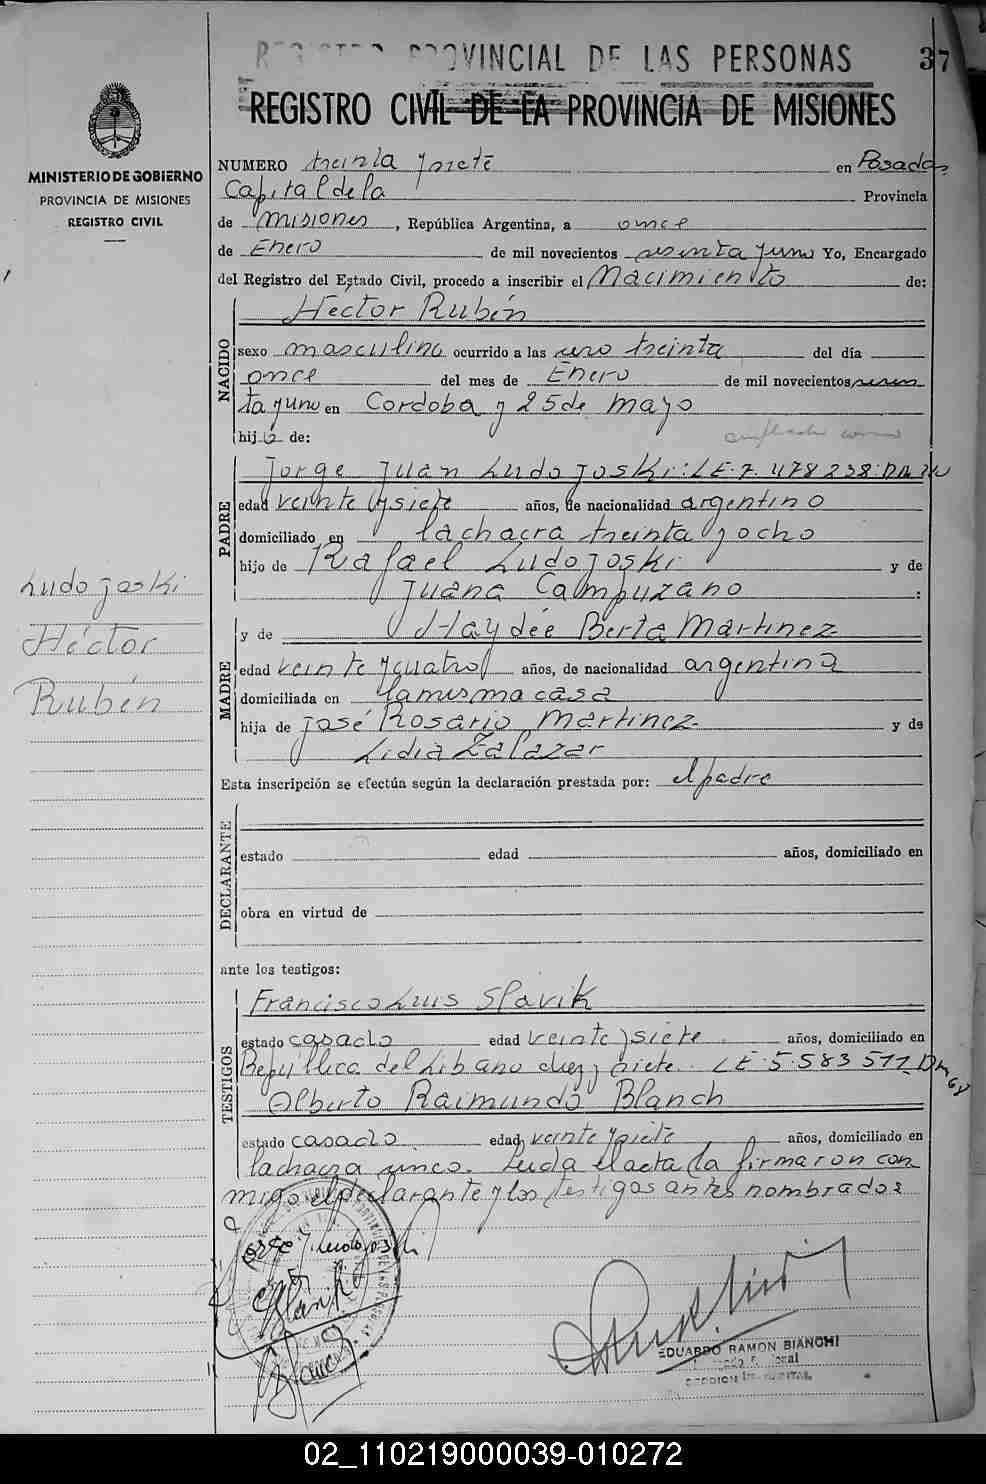 REGISTRO PROVINCIAL DE LAS PERSONAS
37
REGISTRO CIVIL DE LA PROVINCIA DE MISIONES
MINISTERIO DE GOBIERNO
PROVINCIA DE MISIONES
REGISTRO CIVIL
NUMERO treinta y siete en Posadas
Capital de la Provincia
de Misiones, República Argentina, a once
de Enero de mil novecientos sesenta y uno Yo, Encargado
del Registro del Estado Civil, procedo a inscribir el Nacimiento de:
Héctor Rubén
NACIDO
sexo masculino ocurrido a las uno treinta del día
once del mes de Enero de mil novecientos sesen
ta y uno en Cordoba y 25 de Mayo
hijo de:
Jorge Juan Ludojoski: LE. 7.478238:
PADRE
edad veinte y siete años, de nacionalidad argentino
domiciliado en la chacra treinta y ocho
hijo de Rafael Ludojoski y de
Juana Campuzano :
Ludojoski
Héctor
Rubén
y de Haydée Berta Martinez
MADRE
edad veinte y cuatro años, de nacionalidad argentina
domiciliada en la misma casa
hija de José Rosario Martinez y de
Lidia Zalazar
Esta inscripción se efectúa según la declaración prestada por: el padre
DECLARANTE
estado edad años, domiciliado en
obra en virtud de
ante los testigos:
Francisco Luis Slavik
TESTIGOS
estado casado edad veinte y siete años, domiciliado en
República del Libano diez y siete. LE 5.583577
Alberto Raimundo Blanch
estado casado edad veinte y siete años, domiciliado en
la chacra cinco. Leida el acta la firmaron con
migo el declarante y los testigos antes nombrados
EDUARDO RAMON BIANCHI
02_110219000039-010272